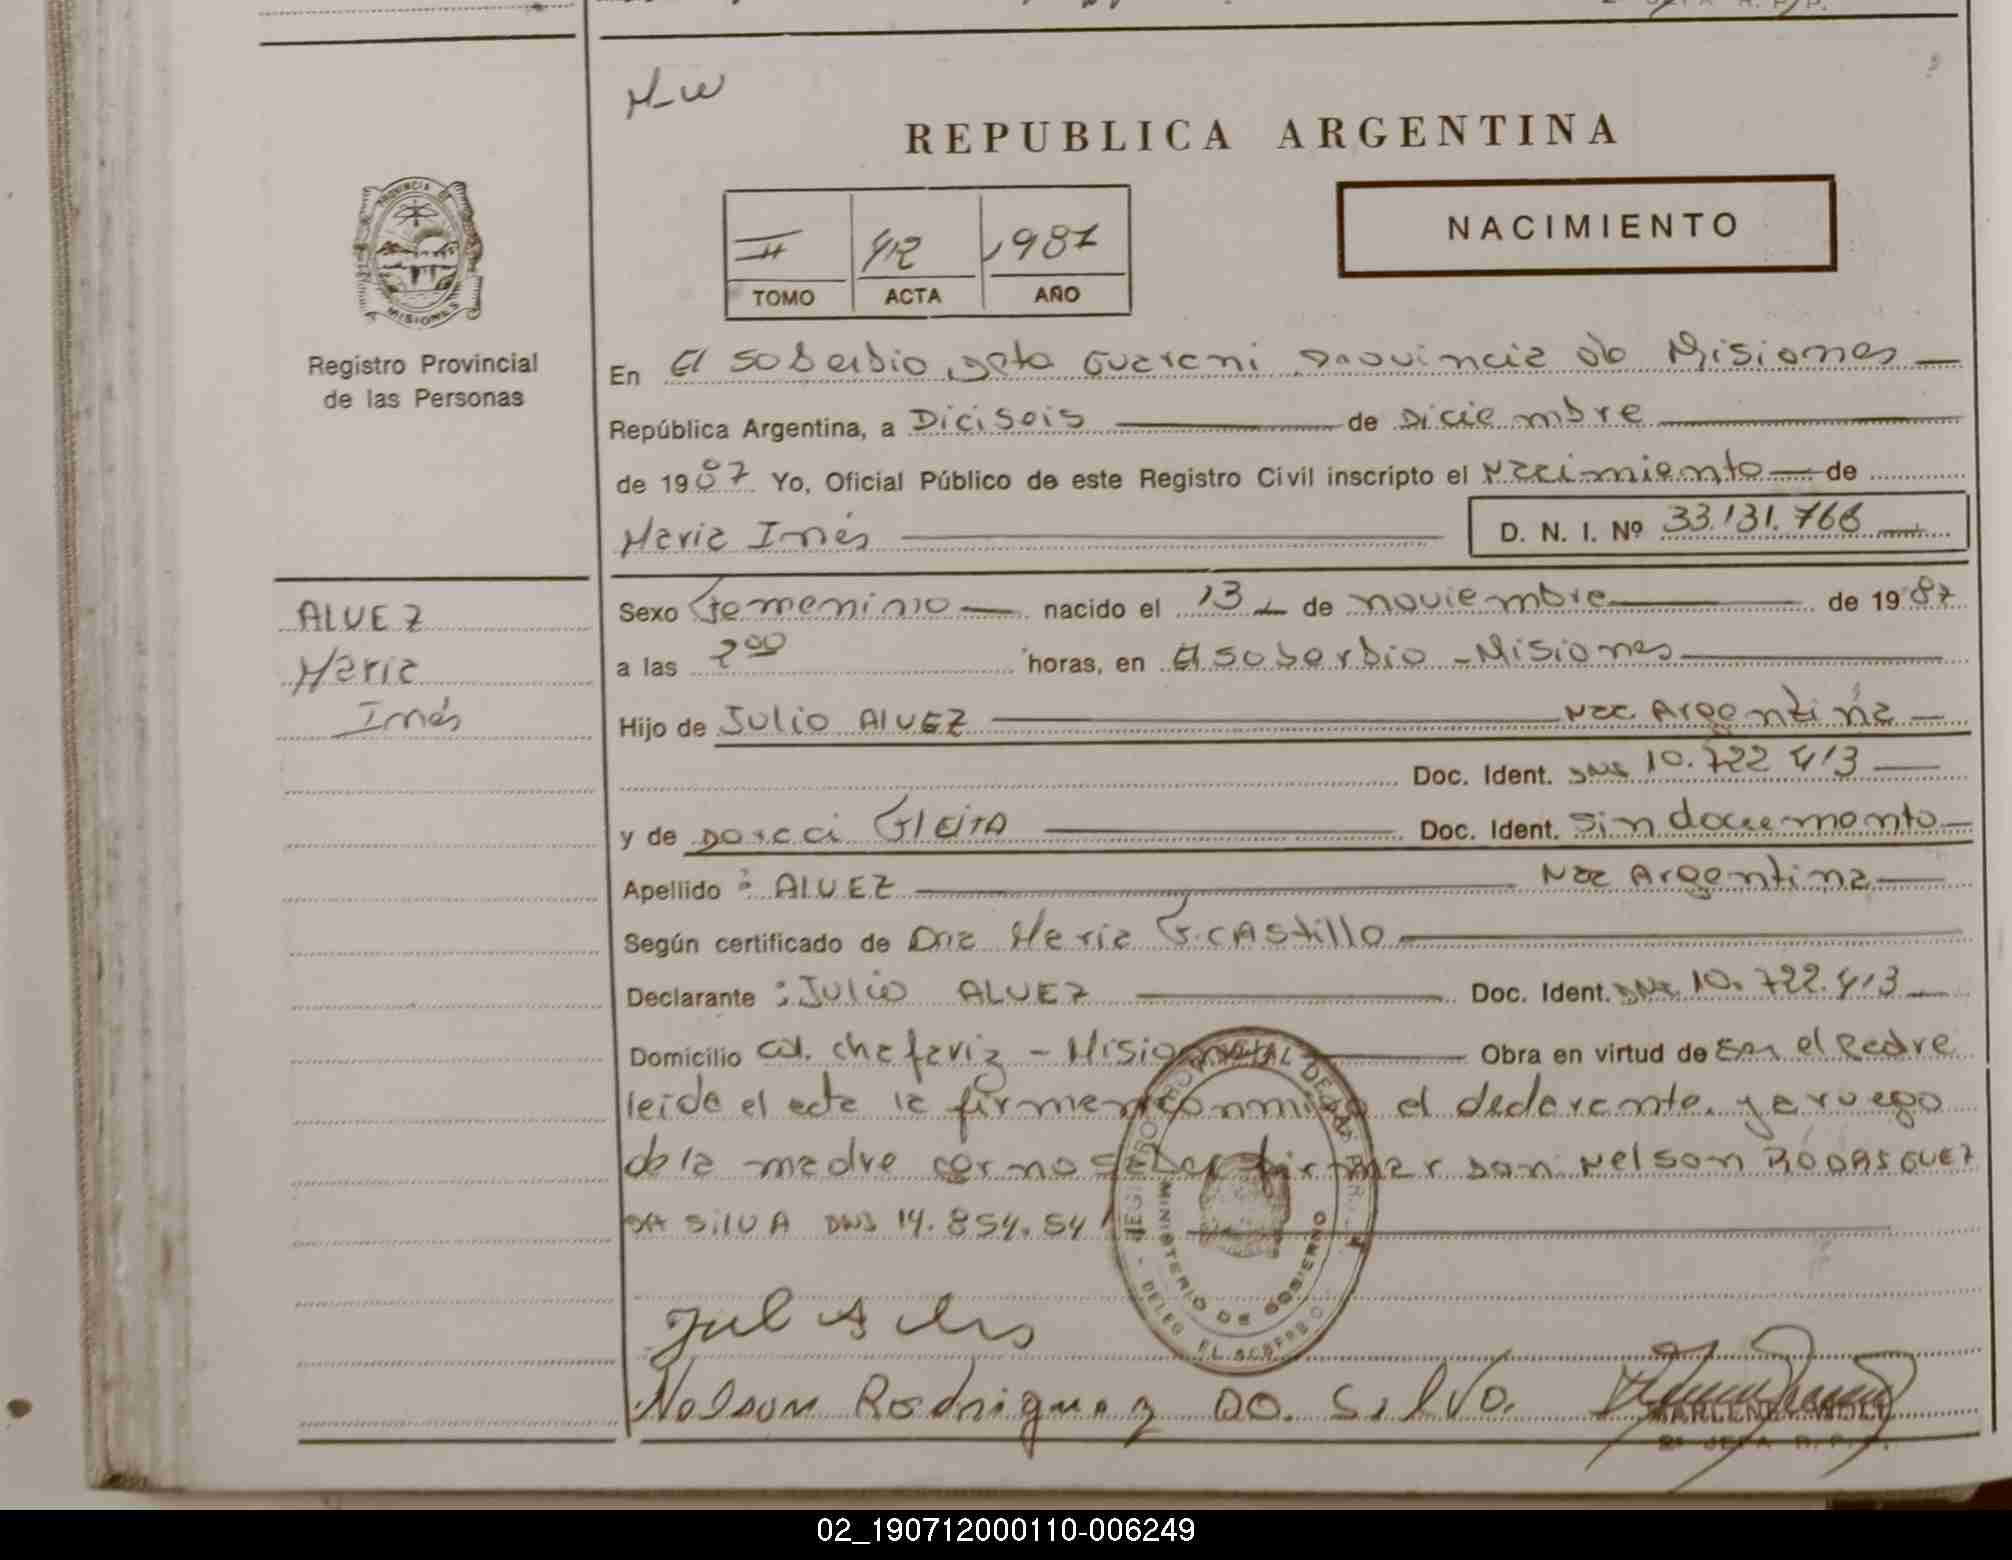 M-W
REPUBLICA ARGENTINA
NACIMIENTO
II 412 1987
TOMO ACTA AÑO
PROVINCIA DE
MISIONES
Registro Provincial
de las Personas
En El Soberbio, Dpto Guarani Provincia de Misiones
República Argentina, a Diciseis de Diciembre
de 1987 Yo, Oficial Público de este Registro Civil inscripto el Nacimiento de
Maria Inés D. N. I. Nº 33.131.766
ALVEZ
Maria
Inés
Sexo Femenino nacido el 13 de noviembre de 1987
a las 2 00 horas, en El Soberbio - Misiones
Hijo de Julio Alvez Nac Argentina
Doc. Ident. DNI 10.722.413
y de Doraci Gleita Doc. Ident. Sin documento
Apellido : Alvez Nac Argentina
Según certificado de Dña Maria G. Castillo
Declarante : Julio ALVEZ Doc. Ident. DNI 10.722.413
Domicilio Col. Chafariz - Misiones Obra en virtud de Ser el Padre
leida el acta la firman conmigo el declarante. y a ruego
de la madre por no saber firmar Don Nelson RODRIGUEZ
DA SILVA DNI 14.854.541
REGISTRO PROVINCIAL DE LAS PER.
MINISTERIO DE GOBIERNO
DELEG EL SOBERBIO
Nelson Rodriguez Da. Silva.
MARLENE WOLF
2ª JEFA R. P. P.
02_190712000110-006249